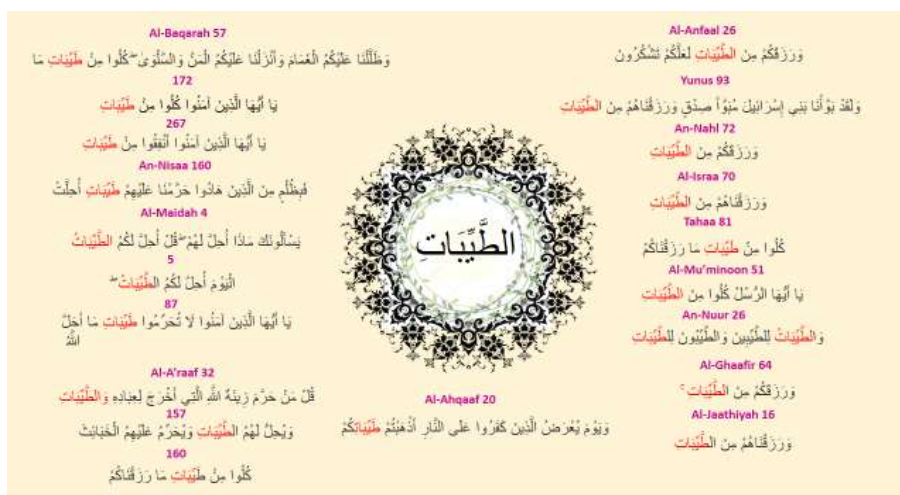 Al-Baqarah 57
وَظَلَّلْنَا عَلَيْكُمُ الْغَمَامَ وَأَنْزَلْنَا عَلَيْكُمُ الْمَنَّ وَالسَّلْوَىٰ ۖ كُلُوا مِنْ طَيِّبَاتِ مَا
172
يَا أَيُّهَا الَّذِينَ آمَنُوا كُلُوا مِنْ طَيِّبَاتِ
267
يَا أَيُّهَا الَّذِينَ آمَنُوا أَنْفِقُوا مِنْ طَيِّبَاتِ
An-Nisaa 160
فَبِظُلْمٍ مِنَ الَّذِينَ هَادُوا حَرَّمْنَا عَلَيْهِمْ طَيِّبَاتٍ أُحِلَّتْ
Al-Maidah 4
يَسْأَلُونَكَ مَاذَا أُحِلَّ لَهُمْ ۖ قُلْ أُحِلَّ لَكُمُ الطَّيِّبَاتُ
5
الْيَوْمَ أُحِلَّ لَكُمُ الطَّيِّبَاتُ ۖ
87
يَا أَيُّهَا الَّذِينَ آمَنُوا لَا تُحَرِّمُوا طَيِّبَاتِ مَا أَحَلَّ
اللَّهُ
Al-A'raaf 32
قُلْ مَنْ حَرَّمَ زِينَةَ اللَّهِ الَّتِي أَخْرَجَ لِعِبَادِهِ وَالطَّيِّبَاتِ
157
وَيُحِلُّ لَهُمُ الطَّيِّبَاتِ وَيُحَرِّمُ عَلَيْهِمُ الْخَبَائِثَ
160
كُلُوا مِنْ طَيِّبَاتِ مَا رَزَقْنَاكُمْ
الطَّيِّبَاتِ
Al-Ahqaaf 20
وَيَوْمَ يُعْرَضُ الَّذِينَ كَفَرُوا عَلَى النَّارِ أَذْهَبْتُمْ طَيِّبَاتِكُمْ
Al-Anfaal 26
وَرَزَقَكُمْ مِنَ الطَّيِّبَاتِ لَعَلَّكُمْ تَشْكُرُونَ
Yunus 93
وَلَقَدْ بَوَّأْنَا بَنِي إِسْرَائِيلَ مُبَوَّأَ صِدْقٍ وَرَزَقْنَاهُمْ مِنَ الطَّيِّبَاتِ
An-Nahl 72
وَرَزَقَكُمْ مِنَ الطَّيِّبَاتِ
Al-Israa 70
وَرَزَقْنَاهُمْ مِنَ الطَّيِّبَاتِ
Tahaa 81
كُلُوا مِنْ طَيِّبَاتِ مَا رَزَقْنَاكُمْ
Al-Mu'minoon 51
يَا أَيُّهَا الرُّسُلُ كُلُوا مِنَ الطَّيِّبَاتِ
An-Nuur 26
وَالطَّيِّبَاتُ لِلطَّيِّبِينَ وَالطَّيِّبُونَ لِلطَّيِّبَاتِ
Al-Ghaafir 64
وَرَزَقَكُمْ مِنَ الطَّيِّبَاتِ ۚ
Al-Jaathiyah 16
وَرَزَقْنَاهُمْ مِنَ الطَّيِّبَاتِ